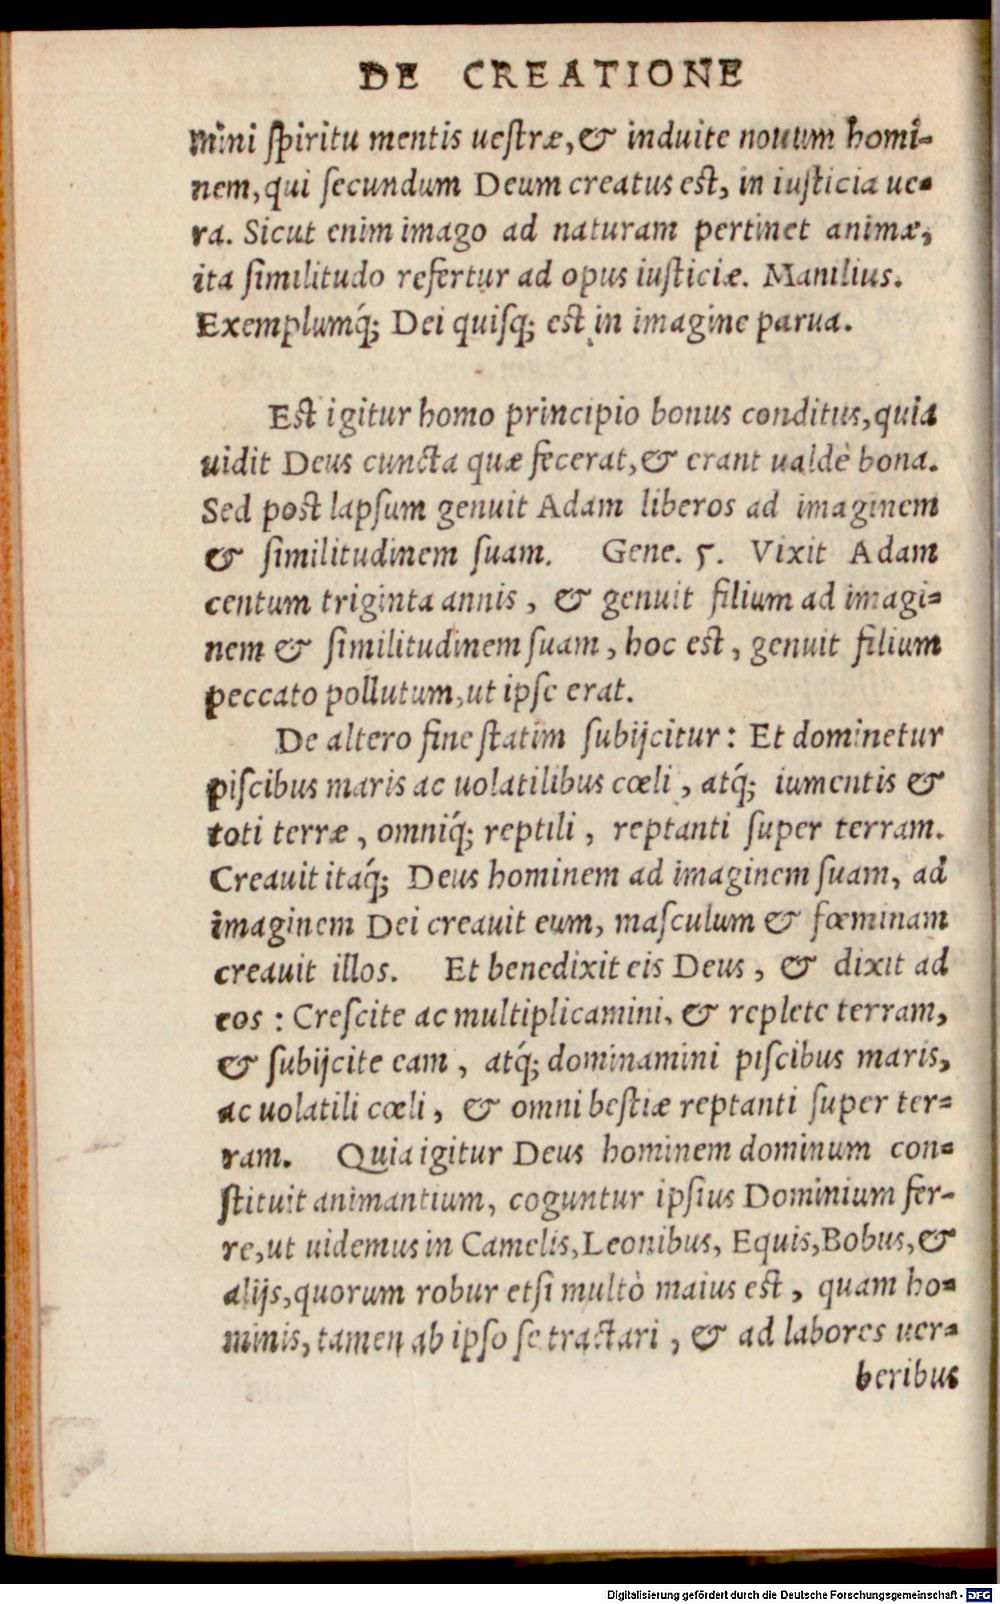 DE CREATIONE
mini ſpiritu mentis ueſtræ, & induite nouum homi-
nem, qui ſecundum Deum creatus eſt, in iuſticia ue-
ra. Sicut enim imago ad naturam pertinet animæ,
ita ſimilitudo refertur ad opus iuſticiæ. Manilius.
Exemplumq́; Dei quiſq; eſt in imagine parua.
Eſt igitur homo principio bonus conditus, quia
uidit Deus cuncta quæ fecerat, & erant ualdè bona.
Sed poſt lapſum genuit Adam liberos ad imaginem
& ſimilitudinem ſuam. Gene. 5. Vixit Adam
centum triginta annis, & genuit filium ad imagi-
nem & ſimilitudinem ſuam, hoc eſt, genuit filium
peccato pollutum, ut ipſe erat.
De altero fine ſtatim ſubijcitur: Et dominetur
piſcibus maris ac uolatilibus cœli, atq́; iumentis &
toti terræ, omniq́; reptili, reptanti ſuper terram.
Creauit itaq́; Deus hominem ad imaginem ſuam, ad
imaginem Dei creauit eum, maſculum & fœminam
creauit illos. Et benedixit eis Deus, & dixit ad
eos: Creſcite ac multiplicamini, & replete terram,
& ſubijcite eam, atq́; dominamini piſcibus maris,
ac uolatili cœli, & omni beſtiæ reptanti ſuper ter-
ram. Quia igitur Deus hominem dominum con-
ſtituit animantium, coguntur ipſius Dominium fer-
re, ut uidemus in Camelis, Leonibus, Equis, Bobus, &
alijs, quorum robur etſi multò maius eſt, quam ho-
minis, tamen ab ipſo ſe tractari, & ad labores uer-
beribus
Digitalisierung gefördert durch die Deutsche Forschungsgemeinschaft - DFG